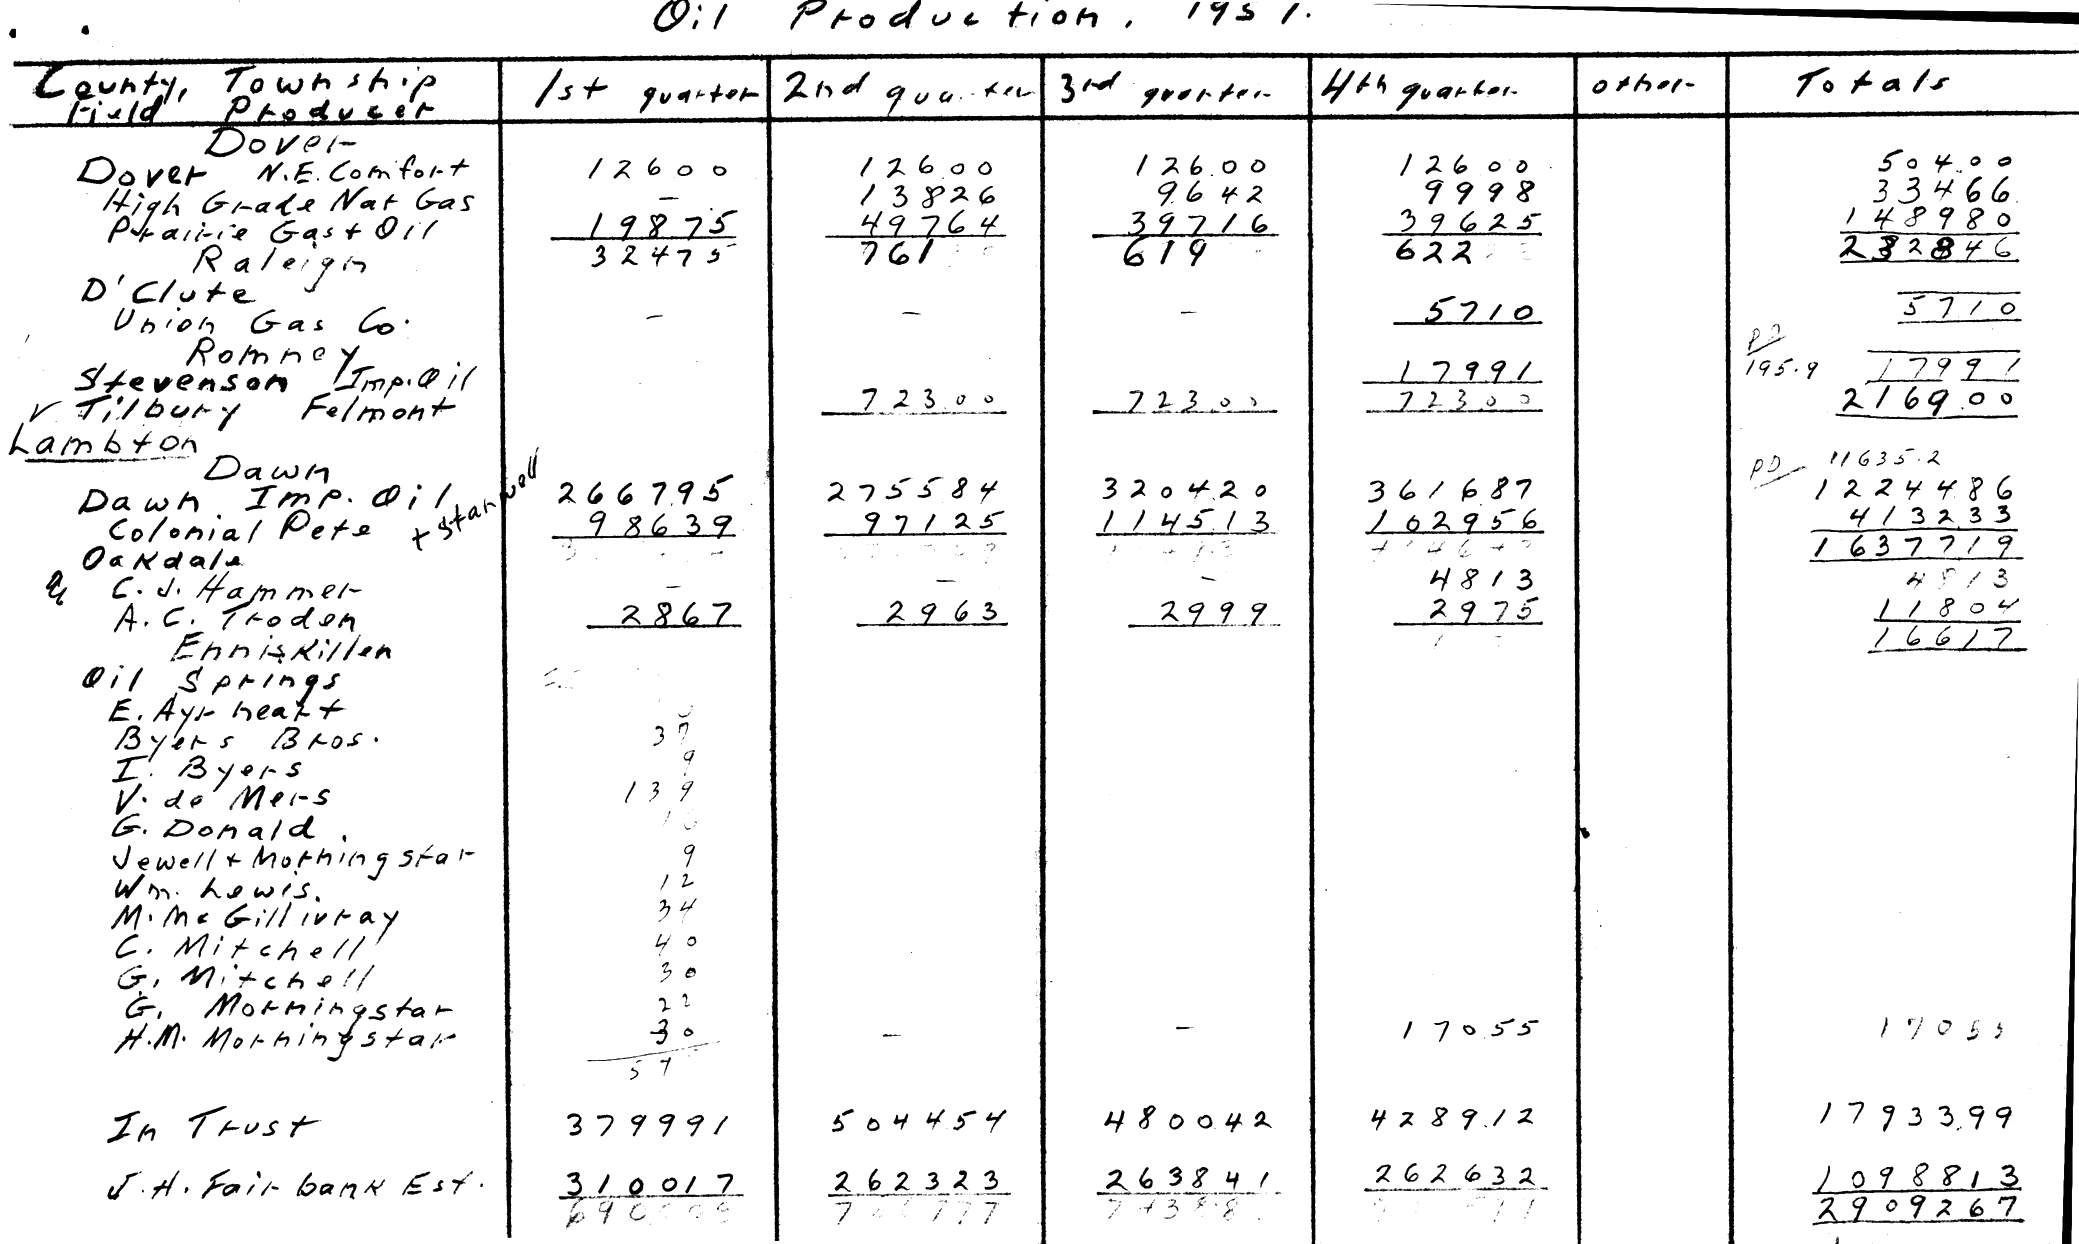 Oil Production. 1951.
County, Township Field Producer 1st quarter 2nd quarter 3rd quarter 4th quarter other Totals
Dover
Dover N.E. Comfort 12600 126.00 126.00 126.00 504.00
High Grade Nat Gas - 13826 96.42 9998 33466
Prairie Gas + Oil 19875 49764 39716 39625 148980
32475 761 619 622 232846
Raleigh
D'Clute
Union Gas Co. - - - 5710 5710
Romney
Stevenson Imp. Oil 17991 195.9 17991
v Tilbury Felmont 723.00 723.00 723.00 2169.00
Lambton
Dawn PD 11635.2
Dawn Imp. Oil 266795 275584 320420 361687 1224486
Colonial Pete + Stanwell 98639 97125 114513 102956 413233
1637719
Oakdale
C. J. Hammer - - - 4813 4813
A. C. Troden 2867 2963 2999 2975 11804
16617
Enniskillen
Oil Springs
E. Ayrheart
Byers Bros. 37
I. Byers 9
V. de Mers 139
G. Donald
Jewell + Morningstar 9
Wm. Lewis. 12
M. McGillivray 34
C. Mitchell 40
G. Mitchell 30
G. Morningstar 22
H.M. Morningstar 30 - - 17055 17055
57
In Trust 379991 504454 480042 428912 1793399
J.H. Fairbank Est. 310017 262323 263841 262632 1098813
2909267